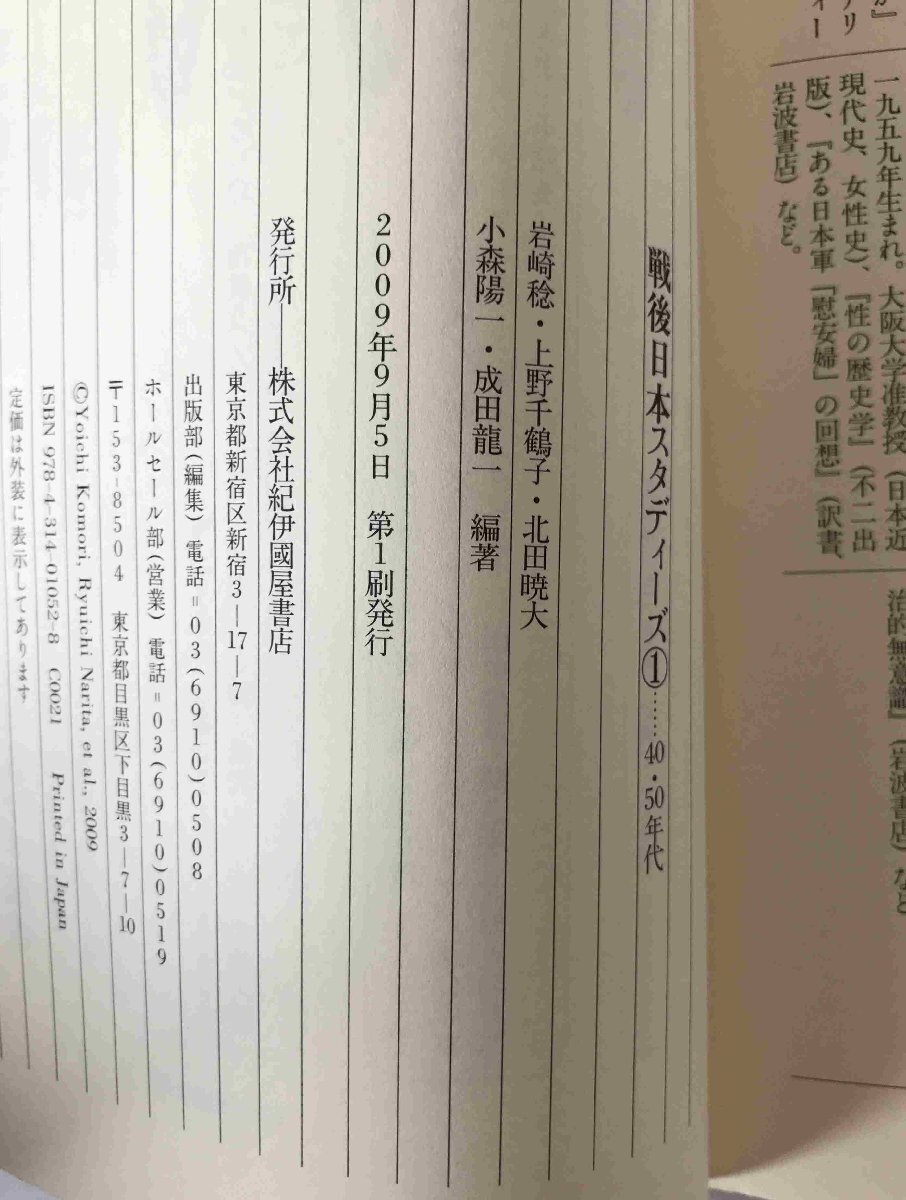 一九五九年生まれ。大阪大学准教授（日本近
現代史、女性史）、『性の歴史学』（不二出
版）、『ある日本軍「慰安婦」の回想』（訳書、
岩波書店）など。
治的無意識』（岩波書店）など
戦後日本スタディーズ①……40・50年代
岩崎稔・上野千鶴子・北田暁大
小森陽一・成田龍一　編著
2009年9月5日　第1刷発行
発行所──株式会社紀伊國屋書店
東京都新宿区新宿3─17─7
出版部(編集)　電話=03(6910)0508
ホールセール部(営業)　電話=03(6910)0519
〒153-8504　東京都目黒区下目黒3─7─10
©Yoichi Komori, Ryuichi Narita, et al., 2009
ISBN 978-4-314-01052-8　C0021　Printed in Japan
定価は外装に表示してあります